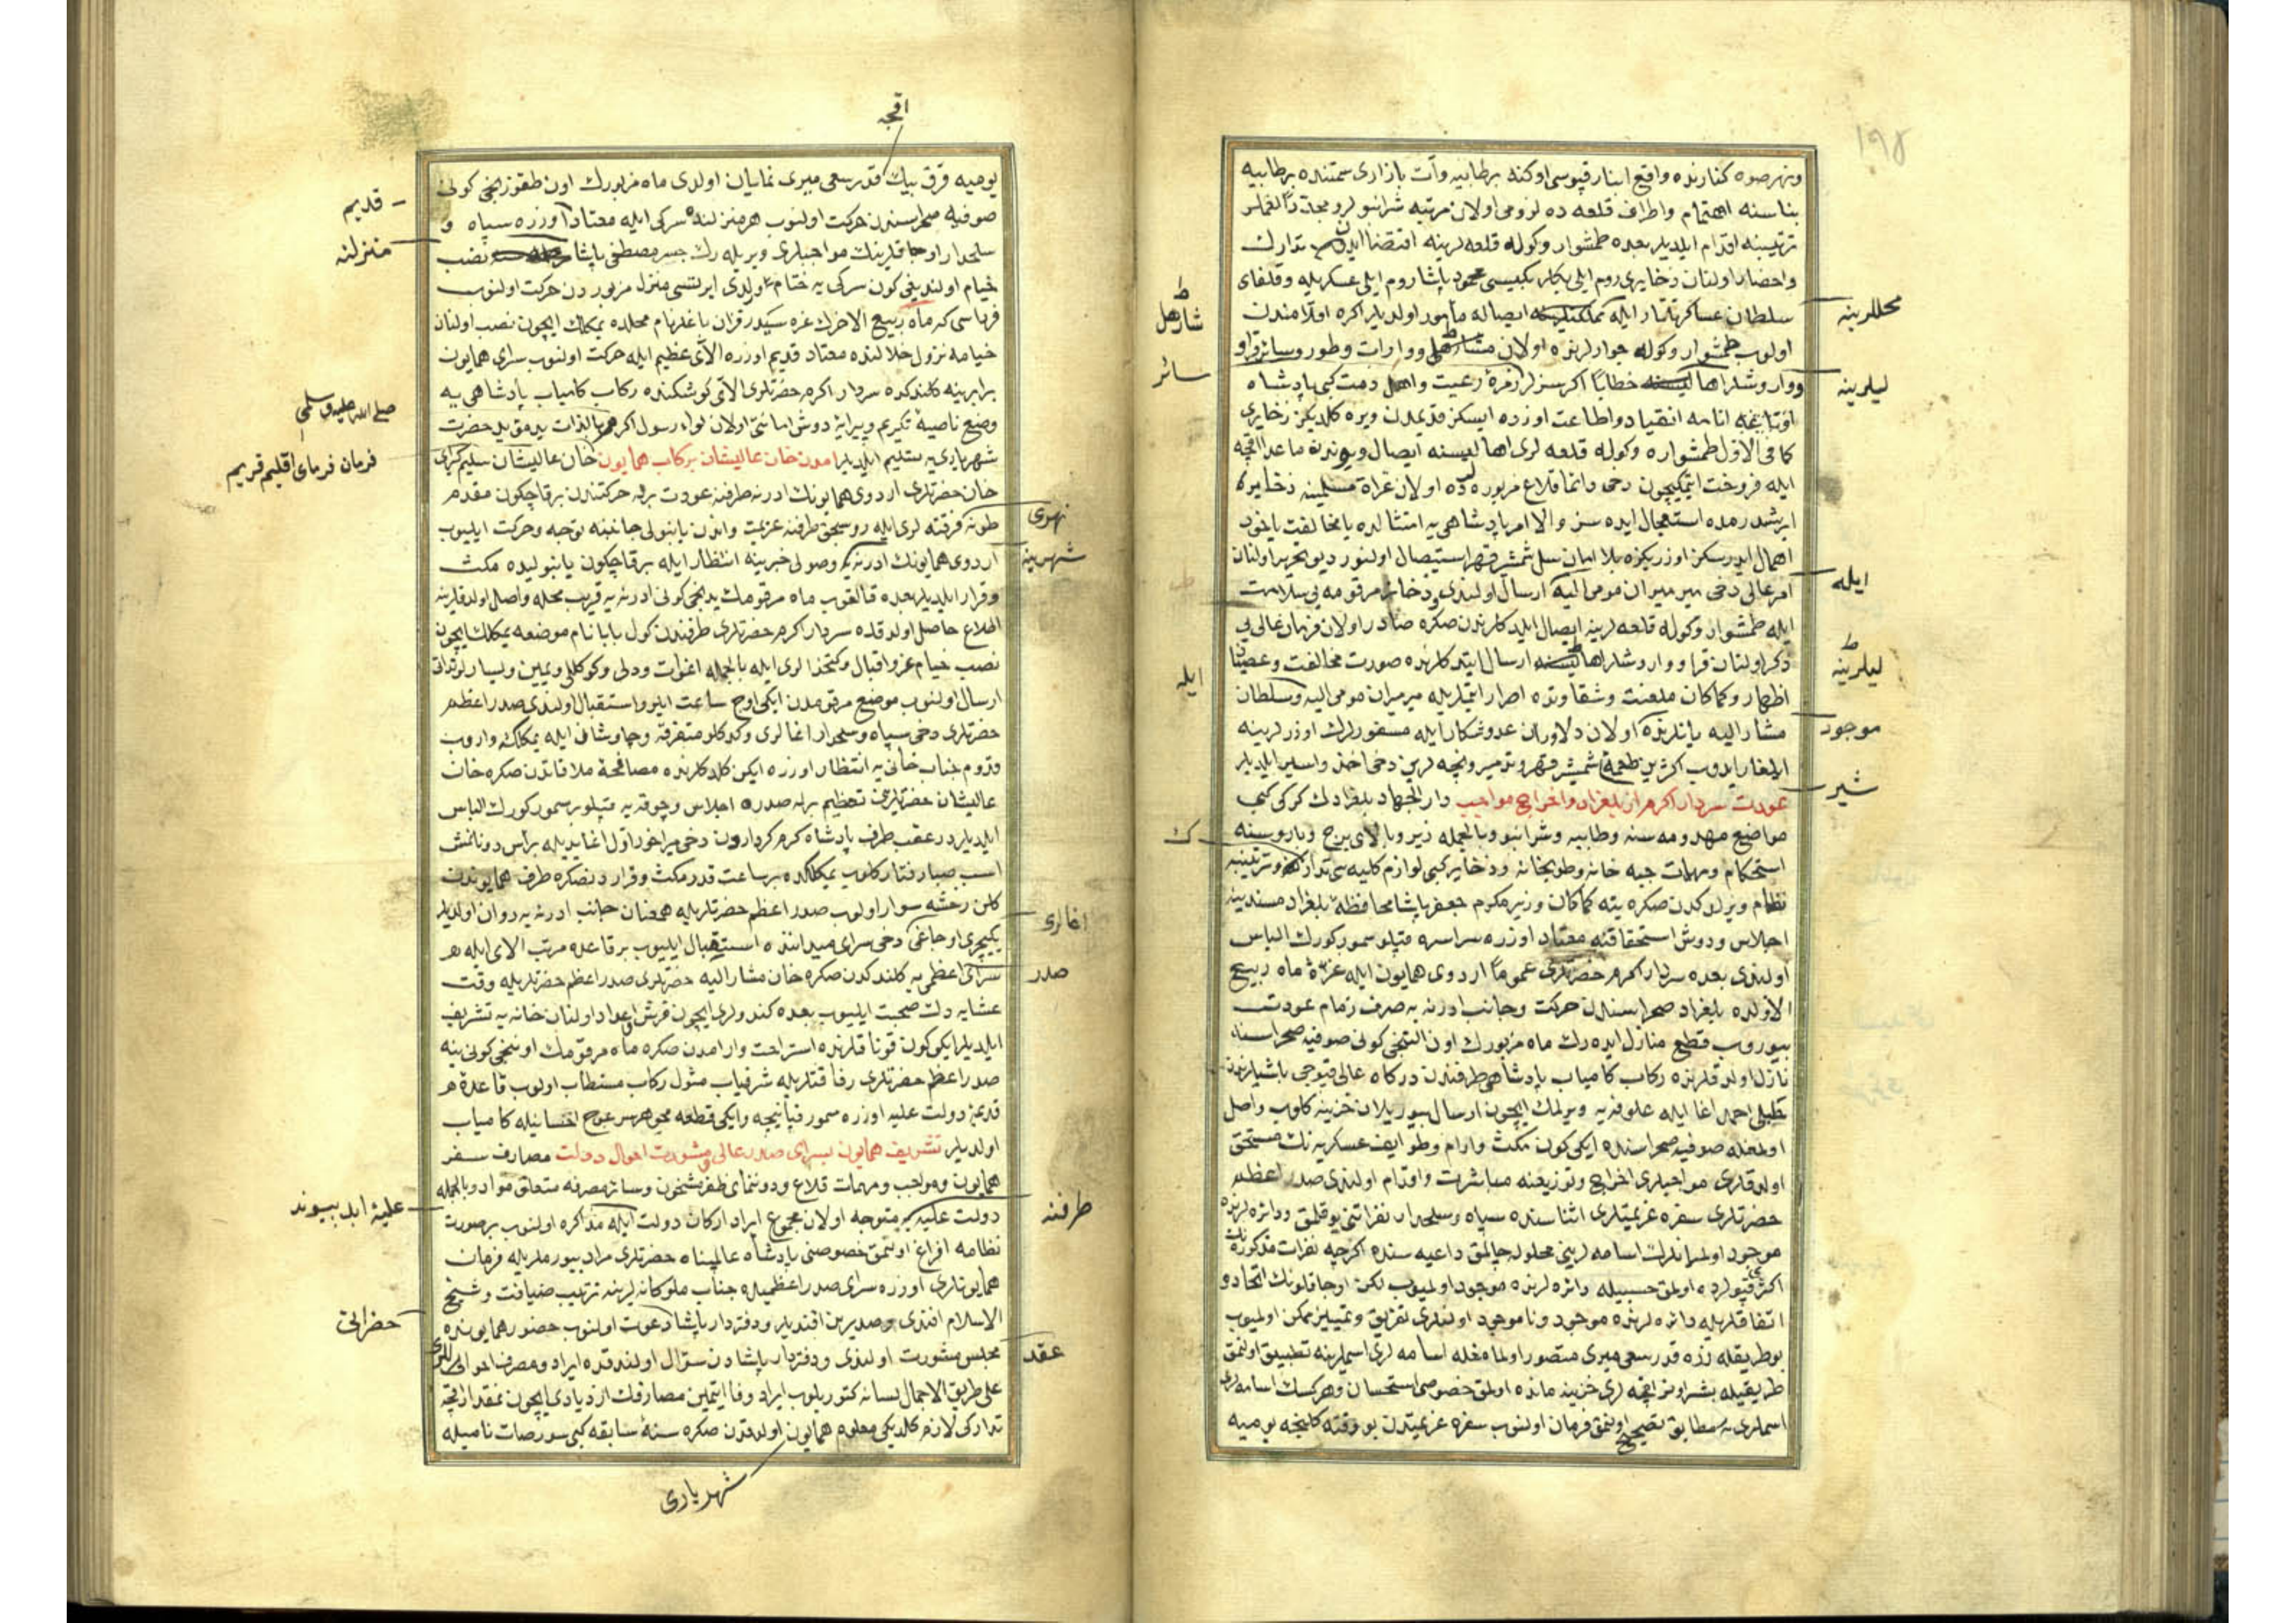 ١٩٨
ونهر صوه كنارنده واقع انبار قپوسى اوكنه بر طابيه وآت بازارى سمتنده بر طابيه
بناسنه اهتمام واطراف قلعه ده لزومى اولان مرتبه شرانپولر و مجددا لغملر
ترتيبنه اقدام ايلديلر بعده طمشوار وكوله قلعه لرينه اقتضا ايدن تدارك
واحضار اولنان ذخايرى روم ايلى بكلربكيسى محمود پاشا روم ايلى عسكريله وقلغاى
سلطان عساكر تاتار ايله ايصاله مأمور اولديلر اكره اولا مندن
محللرينه
اولوب طمشوار وكوله جوارلرنده اولان ووارات وطور وسائر قرا و
سائر
وواروشلر اها خطابا اكر سز لر زمرۀ رعيت واهل ذمت كبى پادشاه
ليلرينه
انامه انقياد واطاعت اوزره ايسكز قديمدن ويره كلديكز ذخايرى
كما فى الاول طمشواره وكوله قلعه لرى اهاليسنه ايصال ماعدا اقچه
ايله فروخت ايتمكيچون دخى دائما قلاع مزبوره ده اولان غزاة مسلمينه ذخايره
ايرشدرمده استعجال ايده سز والا امر پادشاهى يه امتثالده يا مخالفت ياخود
اهمال ايدرسكز اوزريكزه بلا امان سل شمشير قهر استيصال اولنور ديو تحرير اولنان
امر عالى دخى ميرميران مومى اليه ارسال اولندى وذخائر مرقومه يى سلامت
ايله
ايله طمشوار وكوله قلعه لرينه ايصال ايلدكلرندن صكره صادر اولان فرمان عالى يى
ذكر اولنان قرا و واروشلر اها ارسال ايتدكلرنده صورت مخالفت وعصيان
ليلرينه
اظهار وكماكان ملعنت وشقاوتده اصرار ايتملريله ميرميران مومى اليه وسلطان
ايله
مشار اليه يانلرنده اولان دلاوران عدو شكار ايله مسفورلرك اوزرلرينه
موجود
ايلغار ايدوب اكثرين طعمۀ شمشير قهر وتدمير ونيجه لرين دخى اخذ واسير ايلديلر
شير
عودت سردار اكرم از بلغراد واخراج مواجب دار الجهاد بلغرادك كركى كبى
مواضع مهدومه سنه وطابيه وشرانپو وبالجمله زير وبالاى برج وباروسنه
استحكام ومهمات جبه خانه وطوپخانه وذخاير كبى لوازم كليه سى تدارك وترتيبنه
نظام ويرلدكدن صكره ينه كماكان وزير مكرم جعفر پاشا محافظۀ بلغراد مسندينه
اجلاس ودوش استحقاقنه معتاد اوزره سراسره قپلو سمور كورك الباس
اولندى بعده سردار اكرم حضرتلرى عموما اردوى همايون ايله غرۀ ماه ربيع
الاولده بلغراد صحراسندن حركت وجانب ادرنه يه صرف زمام عودت
بيوروب قطع منازل ايده رك ماه مزبورك اون التنجى كونى صوفيه صحراسنه
نازل اولدقلرنده ركاب كامياب پادشاهى طرفندن دركاه عالى قپوجى باشيلرندن
احمد اغا ايله علوفه يه ويرلمك ايچون ارسال بيوريلان خزينه كلوب واصل
اولمغله صوفيه صحراسنده ايكى كون مكث وارام وطوايف عسكريه نك مستحق
اولدقلرى مواجبلرى اخراج وتوزيعنه مباشرت واقدام اولندى صدر اعظم
حضرتلرى سفره عزيمتلرى اثناسنده سپاه وسلحدار نفراتنى يوقلمق ودائره لرنده
موجود اولميانلرك اسامه لرينى محلول چالمق داعيه سنده اكرچه نفرات مذكوره نك
اكثرى قپولرده اولمق حسبيله دائره لرنده موجود اولميوب لكن اوجاقلونك اتحاد و
اتفاقلريله دائره لرنده موجود ونا موجود اولنلرى تفريق وتمييز ممكن اولميوب
بو طريقله ذره قدر سعى ميرى متصور اولمامغله اسامه لرى اسملرينه تطبيق اولنمق
طريقيله بشر اونر اقچه لرى خزينه مانده اولمق خصوصى استحسان وهركسك اسامه لرى
اسملرى يه مطابق تصحيح اولنمق فرمان اولنوب سفره عزيمتدن بو وقته كلنجه يوميه
اقچه
يوميه قرق بيك قدر سعى ميرى نمايان اولدى ماه مزبورك اون طقوزنجى كونى
صوفيه صحراسندن حركت اولنوب هر منزلنده سركى ايله معتاد اوزره سپاه و
قديم
سلحدار اوجاقلرينك مواجبلرى ويريله رك جسر مصطفى پاشا نصب
منزلنه
خيام اولنديغى كون سركى يه ختام اولدى ايرتسى منزل مزبوردن حركت اولنوب
فرداسى كه ماه ربيع الاخرك غره سيدر نام محلده يمكلك ايچون نصب اولنان
خيامه نزول خلالنده معتاد قديم اوزره الاى عظيم ايله حركت اولنوب سراى همايون
برابرينه كلندكده سردار اكرم حضرتلرى الاى كوشكنده ركاب كامياب پادشاهى يه
وضع ناصيۀ تكريم وپيرايۀ دوش امانتى اولان لواء رسول اكرم بالذات يد مؤيد حضرت
صلى الله عليه وسلمى
شهريارى يه تسليم ايلديلر آمدن خان عاليشان بركاب همايون خان عاليشان سليم كراى
فرمان فرماى اقليم قريم
خان حضرتلرى اردوى همايونك ادرنه طرفنه عودت برله حركتندن بر قاچ كون مقدم
طونه فرقته لرى ايله روسجق طرفنه عزيمت واندن يانبولى جانبنه توجه وحركت ايليوب
نهرى
اردوى همايونك ادرنه يه وصولى خبرينه انتظار ايله بر قاچ كون يانبوليده مكث
شهرينه
وقرار ايلديلر بعده قالقوب ماه مرقومك يدنجى كونى ادرنه يه قريب محله واصل اولدقلرينه
اطلاع حاصل اولدقده سردار اكرم حضرتلرى طرفندن كول بابا نام موضعه يمكلك ايچون
نصب خيام عز واقبال وكتخدالرى ايله بالجمله اغوات ودلى وكوكللى ويمين ويسار
ارسال اولنوب موضع مرقومدن ايكى اوچ ساعت ايلرو استقبال اولندى صدر اعظم
حضرتلرى دخى سپاه وسلحدار اغالرى وكدكلو متفرقه وچاوشان ايله يمكلكه واروب
قدوم جناب خانى يه انتظار اوزره ايكن كلدكلرنده مصافحۀ ملاقاتدن صكره خان
عاليشان حضرتلرى تعظيم برله صدره اجلاس وچوقه يه قپلو بر سمور كورك الباس
ايلديلر در عقب طرف پادشاه كرم كرداردن دخى ميراخور اول اغا يديله بر رأس دونانمش
اسب صبا رفتار كلوب يمكلكده بر ساعت قدر مكث وقراردنصكره طرف همايوندن
كلن رخشه سوار اولوب صدر اعظم حضرتلريله همعنان جانب ادرنه يه روان اولديلر
يكيچرى اوجاغى دخى سراى ميداننده استقبال ايليوب بر قاعده مرتب الاى ايله
اغالرى
سراى اعظمى يه كلندكدن صكره خان مشار اليه حضرتلرى صدر اعظم حضرتلريله وقت
صدر
عشايه دك صحبت ايليوب بعده كندولرى ايچون فرش واعداد اولنان خانه يه تشريف
ايلديلر ايكى كون قوناقلرنده استراحت وارامدن صكره ماه مرقومك اوننجى كونى ينه
صدر اعظم حضرتلرى رفاقتلريله شرفياب مثول ركاب مستطاب اولوب قاعدۀ
قديمۀ دولت عليه اوزره سمور قپانيجه وايكى قطعه مجوهر سرغوج احسانيله كامياب
اولديلر تشريف همايون بسراى صدر عالى ومشورت احوال دولت مصارف سفر
همايون ومواجب ومهمات قلاع ودوننماى ظفر مشحون وسائر مصرفه متعلق مواد وبالجمله
دولت عليه يه متوجه اولان مجموع ايراد اركان دولت ايله مذاكره اولنوب بر صورت
طرفنه
عليۀ ابد پيوند
نظامه افراغ اولنمق خصوصنى پادشاه عالمپناه حضرتلرى مراد بيورملريله فرمان
همايونلرى اوزره سراى صدر اعظميده جناب ملوكانه لرينه ترتيب ضيافت وشيخ
الاسلام افندى وصدرين افنديلر ودفتردار پاشا دعوت اولنوب حضور همايونده
حضراتى
مجلس مشورت اولندى ودفتردار پاشادن سؤال اولندقده ايراد ومصرف احوالى
عقد
على طريق الاجمال لسانه كتوريلوب ايراد وفا ايتمين مصارفك ازديادى ايچون نقد اقچه
تداركى لازم كلديكى معلوم همايون اولدقدن صكره سنۀ سابقه كبى سورصات ناميله
شهريارى